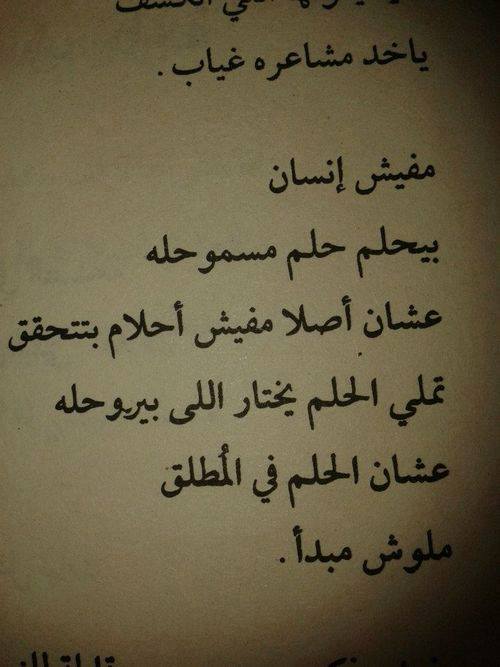 ياخد مشاعره غياب .
مفيش إنسان
بيحلم حلم مسموحله
عشان أصلا مفيش أحلام بتتحقق
تملي الحلم يختار اللى بيروحله
عشان الحلم في المُطلق
ملوش مبدأ .